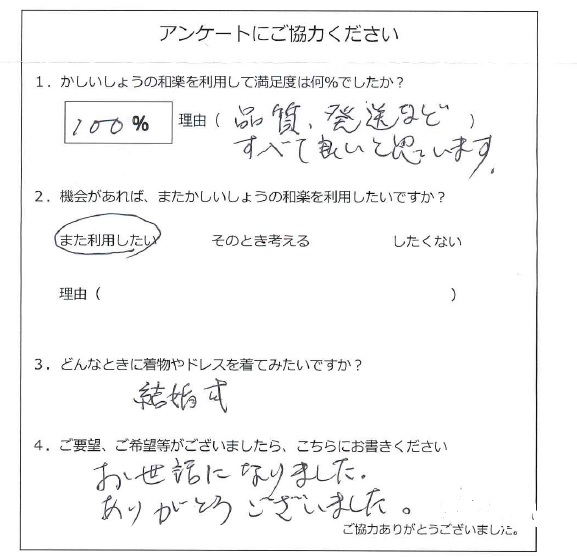 アンケートにご協力ください
1．かしいしょうの和楽を利用して満足度は何%でしたか？
100% 理由（品質、発送など）
すべて良いと思います。
2．機会があれば、またかしいしょうの和楽を利用したいですか？
また利用したい そのとき考える したくない
理由（ ）
3．どんなときに着物やドレスを着てみたいですか？
結婚式
4．ご要望、ご希望等がございましたら、こちらにお書きください
お世話になりました.
ありがとうございました。
ご協力ありがとうございました。